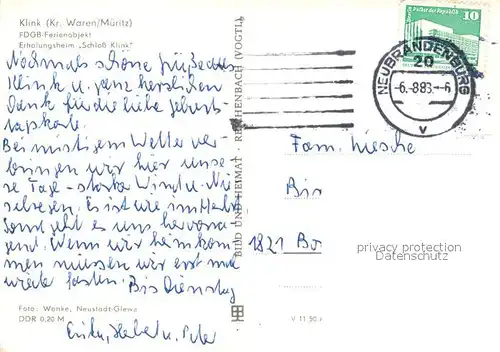 Klink (Kr. Waren/Müritz)
FDGB-Ferienobjekt
Erholungsheim „Schloß Klink"
Nochmals schöne Grüße aus
Klink u. ganz herzlichen
Dank für die liebe Geburts-
tagskarte.
Bei mistigem Wetter ver-
bringen wir hier unse-
re Tage - starker Wind u. Nie-
selregen. Es ist wie im Herbst
Sonst geht es uns hervorra-
gend. Wenn wir heimkom-
men müssen wir erst mal
wieder fasten. Bis Dienstag
Foto: Wanke, Neustadt-Glewe
DDR 0,20 M
Erika, u. Peter
BILD UND HEIMAT · REICHENBACH (VOGTL)
V 11 50
Palast der Republik 10
NEUBRANDENBURG
20
-6.-8.83.-6
v
Fam.
Bis
1821 Bo
privacy protection
datenschutz